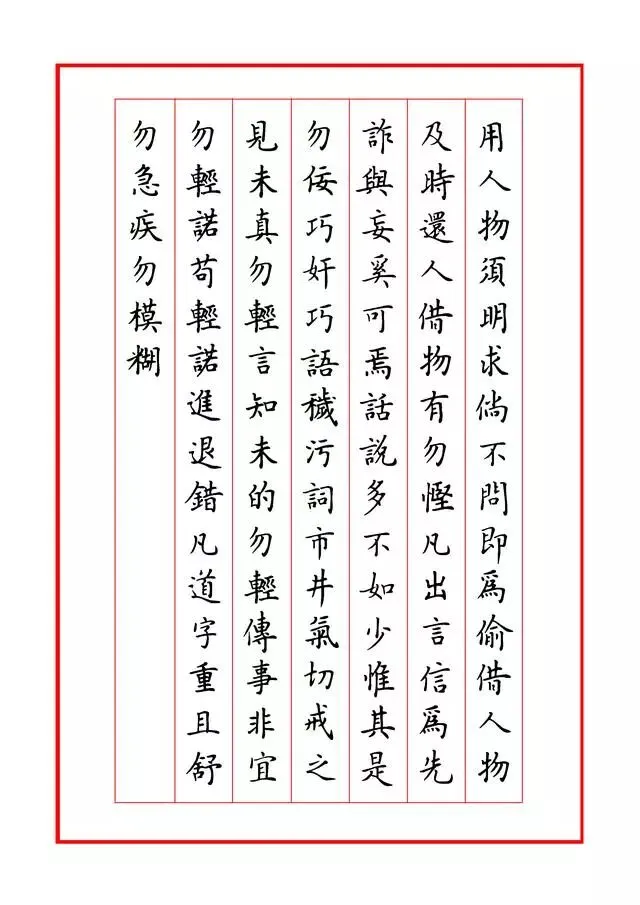 用人物須明求倘不問即爲偷借人物
及時還人借物有勿慳凡出言信爲先
詐與妄奚可焉話説多不如少惟其是
勿佞巧奸巧語穢污詞市井氣切戒之
見未真勿輕言知未的勿輕傳事非宜
勿輕諾苟輕諾進退錯凡道字重且舒
勿急疾勿模糊